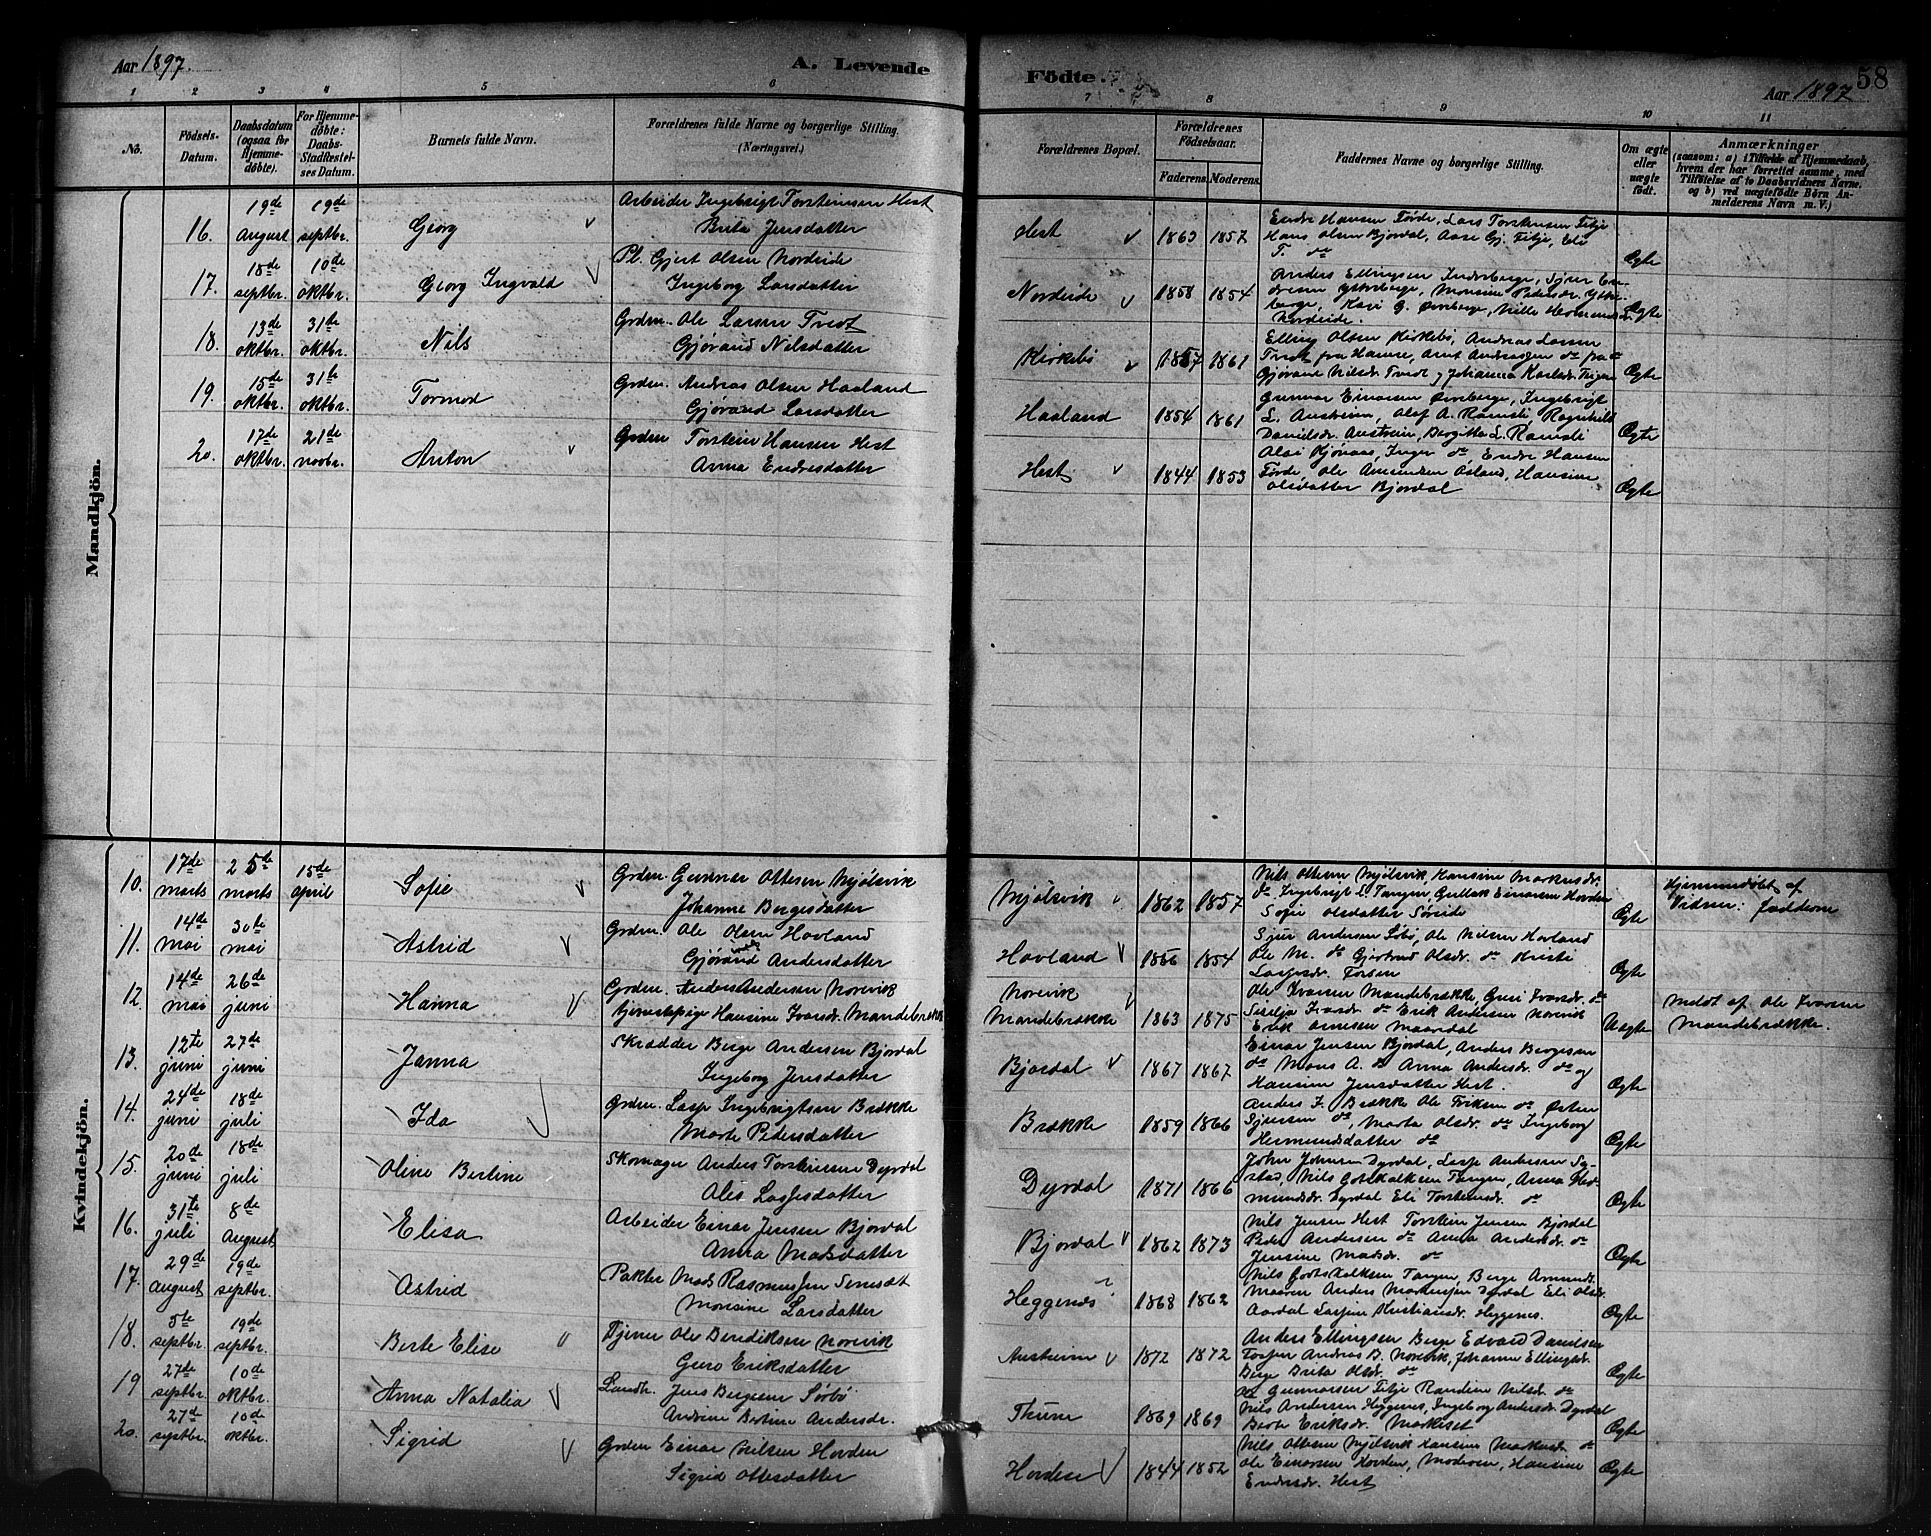 Aar 1897. A. Levende Födte. Aar 1897 58
1 2 3 4 5 6 7 8 9 10 11
No. Födsels-Datum. Daabsdatum (ogsaa for Hjemmedöbte). For Hjemmedöbte: Daabs-Stadfæstelses Datum. Barnets fulde Navn. Forældrenes fulde Navne og borgerlige Stilling. (Næringsvei.) Forældrenes Bopæl. Forældrenes Födselsaar. Faderens. Moderens. Faddernes Navne og borgerlige Stilling. Om ægte eller uægte födt. Anmærkninger (saasom: a) i Tilfælde af Hjemmedaab, hvem der har forrettet samme, med Tilföielse af to Daabsvidners Navne. og b) ved uægtefödte Börn Anmelderens Navn m. V.)
Mandkjön.
16. 19de August 19de septbr. Georg Arbeider Ingebrigt Torsteinsen Hest
Brita Jensdatter Hest 1863 1857 Endre Hansen Förde, Lars Torsteinsen
Hans Olsen Bjordal, Ægte
17. 18de septbr. 10de oktbr. Georg Ingvald Pl. Gjert Olsen Nordeide
Ingeborg Larsdatter Nordeide 1858 1854 Anders Ellingsen
Nordeide. Ægte
18. 13de oktbr. 31te oktbr. Nils Grdm. Ole Larsen Tvedt
Gjørand Nilsdatter Kirkebö 1857 1861 Elling Olsen Kirkebö, Andreas Larsen
Tvedt
Gjørand Nilsdr. Tvedt og Johanna Ægte
19. 15de oktbr. 31te oktbr. Tormod Grdm. Andreas Olsen Haaland
Gjørand Larsdatter Haaland 1854 1861 Gunnar Einarsen Ingebrigt
L. Austreim, Olaf A. Ramsli Ragnhild
Davidsdr. Austreim, Bergitte L. Ramsli Ægte
20. 17de oktbr. 21de novbr. Anton Grdm Torstein Hansen Hest
Anna Endresdatter Hest 1844 1853 Inger do, Endre Hansen
Förde Ole Amundsen Osland, Hansine
Olsdatter Bjordal Ægte
Kvindekjön.
10. 17de marts 25de marts 15de april Sofie Grdm. Gunnar Ottesen Mjölsvik
Johanne Bergesdatter Mjölsvik 1862 1857 Nils Ottesen Mjölsvik, Hansine Markusdr.
do Ingebrigt L. Tangen, Gullak Einarsen Hovden
Sofie Olsdatter Söreide Ægte Hjemmedöbt af
Vidner: Fadderne
11. 14de mai 30te mai Astrid Grdm. Ole Olsen Hovland
Gjørand Andersdatter Hovland 1856 1854 Sjur Andersen Söbö, Ole Nilsen Hovland
Ole M. do Gjertrud Olsdr. do Kristi
Lassesdr. Ægte
12. 14de mai 26de juni Hanna Grdm. Anders Andersen Norevik
Hansine Ivarsdr. Mandebrække Norevik
Mandebrække 1863 1875 Ole Ivarsen Mandebrække, Guri Ivarsdr. do
Ivarsdr. do Erik Andersen Norevik
Erik Uægte Meldt af Ole Ivarsen
Mandebrække.
13. 12te juni 27de juni Janna Skrædder Berge Andersen Bjordal
Ingeborg Jensdatter Bjordal 1867 1867 Einar Jensen Bjordal, Anders Bergesen
do Mons A. do Anna Andersdr. do og
Hansine Jensdatter Hest. Ægte
14. 24de juni 18de juli Ida Grdm. Lasse Ingebrigtsen Brække
Marte Pedersdatter Brække 1859 1866 Anders I. Brække Ole Eriksen do Østen
Sjursen do, Marta Olsdr. do Ingeborg
Hermundsdatter do Ægte
15. 20de juni 18de juli Oline Bertine Skomager Anders Torsteinsen Dyrdal
Ales Lassesdatter Dyrdal 1871 1866 John Johnsen Dyrdal, Lasse Andersen
Nils Gotskalksen Tangen, Anna
Dyrdal Eli Torsteinsdr. do Ægte
16. 31te juli 8de August Elisa Arbeider Einar Jensen Bjordal
Anna Madsdatter Bjordal 1862 1873 Nils Jensen Hest Torstein Jensen Bjordal
Peder Andersen do Anna Andersdr. do
Jensine Madsdr. do Ægte
17. 29de August 19de septbr. Astrid Pakter Mads Rasmussen
Monsine Larsdatter Heggenes 1868 1862 Nils Gotskalksen Tangen, Berge Amunds.
Anders Markussen Dyrdal Eli Olsdr.
Kristiansdr. Heggenes. Ægte
18. 5te septbr. 19de septbr. Berte Elise Tjener Ole Bendiksen Norevik
Guro Eriksdatter Austreim 1872 1872 Anders Ellingsen Berge Edvard Davidsen
Andreas B. Norevik, Johanne Ellingsdr.
Berge Brita Olsdr. do Ægte
19 27de septbr. 10de oktbr. Anna Natalia Landh. Jens Bergesen Sørbö
Andrine Bertine Andersdr. Thune 1869 1869 Ole Gunnarsen Randine Nilsdr. do
Nils Andersen Heggenes, Ingeborg Andersdr. Dyrdal
Berte Eriksdr. Ægte
20. 27de septbr. 10de oktbr. Sigrid Grdm Einar Nilsen Hovden
Sigrid Ottesdatter Hovden 1844 1852 Nils Ottesen Mjölsvik Hansine Markusdr. do
Ole Einarsen Hovden, Moderen, Hansine
Endresdr. Hest Ægte